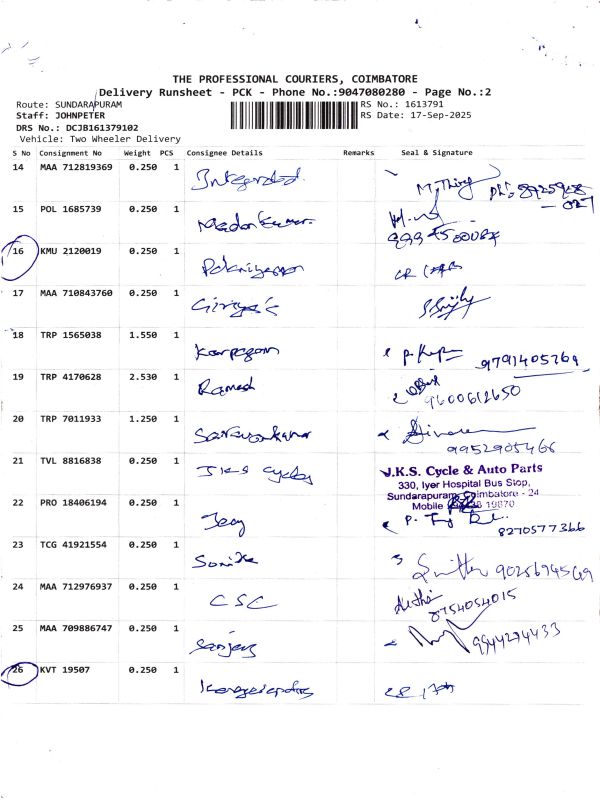 THE PROFESSIONAL COURIERS, COIMBATORE
Delivery Runsheet - PCK - Phone No.:9047080280 - Page No.:2
Route: SUNDARAPURAM RS No.: 1613791
Staff: JOHNPETER RS Date: 17-Sep-2025
DRS No.: DCJB161379102
Vehicle: Two Wheeler Delivery
S No Consignment No Weight PCS Consignee Details Remarks Seal & Signature
14 MAA 712819369 0.250 1
15 POL 1685739 0.250 1 Madankumar
16 KMU 2120019 0.250 1
17 MAA 710843760 0.250 1
18 TRP 1565038 1.550 1 Karpagam 9791405769
19 TRP 4170628 2.530 1 Ramesh 9600612650
20 TRP 7011933 1.250 1 Saravanakumar 9952905466
21 TVL 8816838 0.250 1 JKS cycles
J.K.S. Cycle & Auto Parts
330, Iyer Hospital Bus Stop,
Sundarapuram, Coimbatore - 24
Mobile
22 PRO 18406194 0.250 1 8270577366
23 TCG 41921554 0.250 1 9025694569
24 MAA 712976937 0.250 1 CSC 8754054015
25 MAA 709886747 0.250 1 Sanjay 9944274433
26 KVT 19507 0.250 1